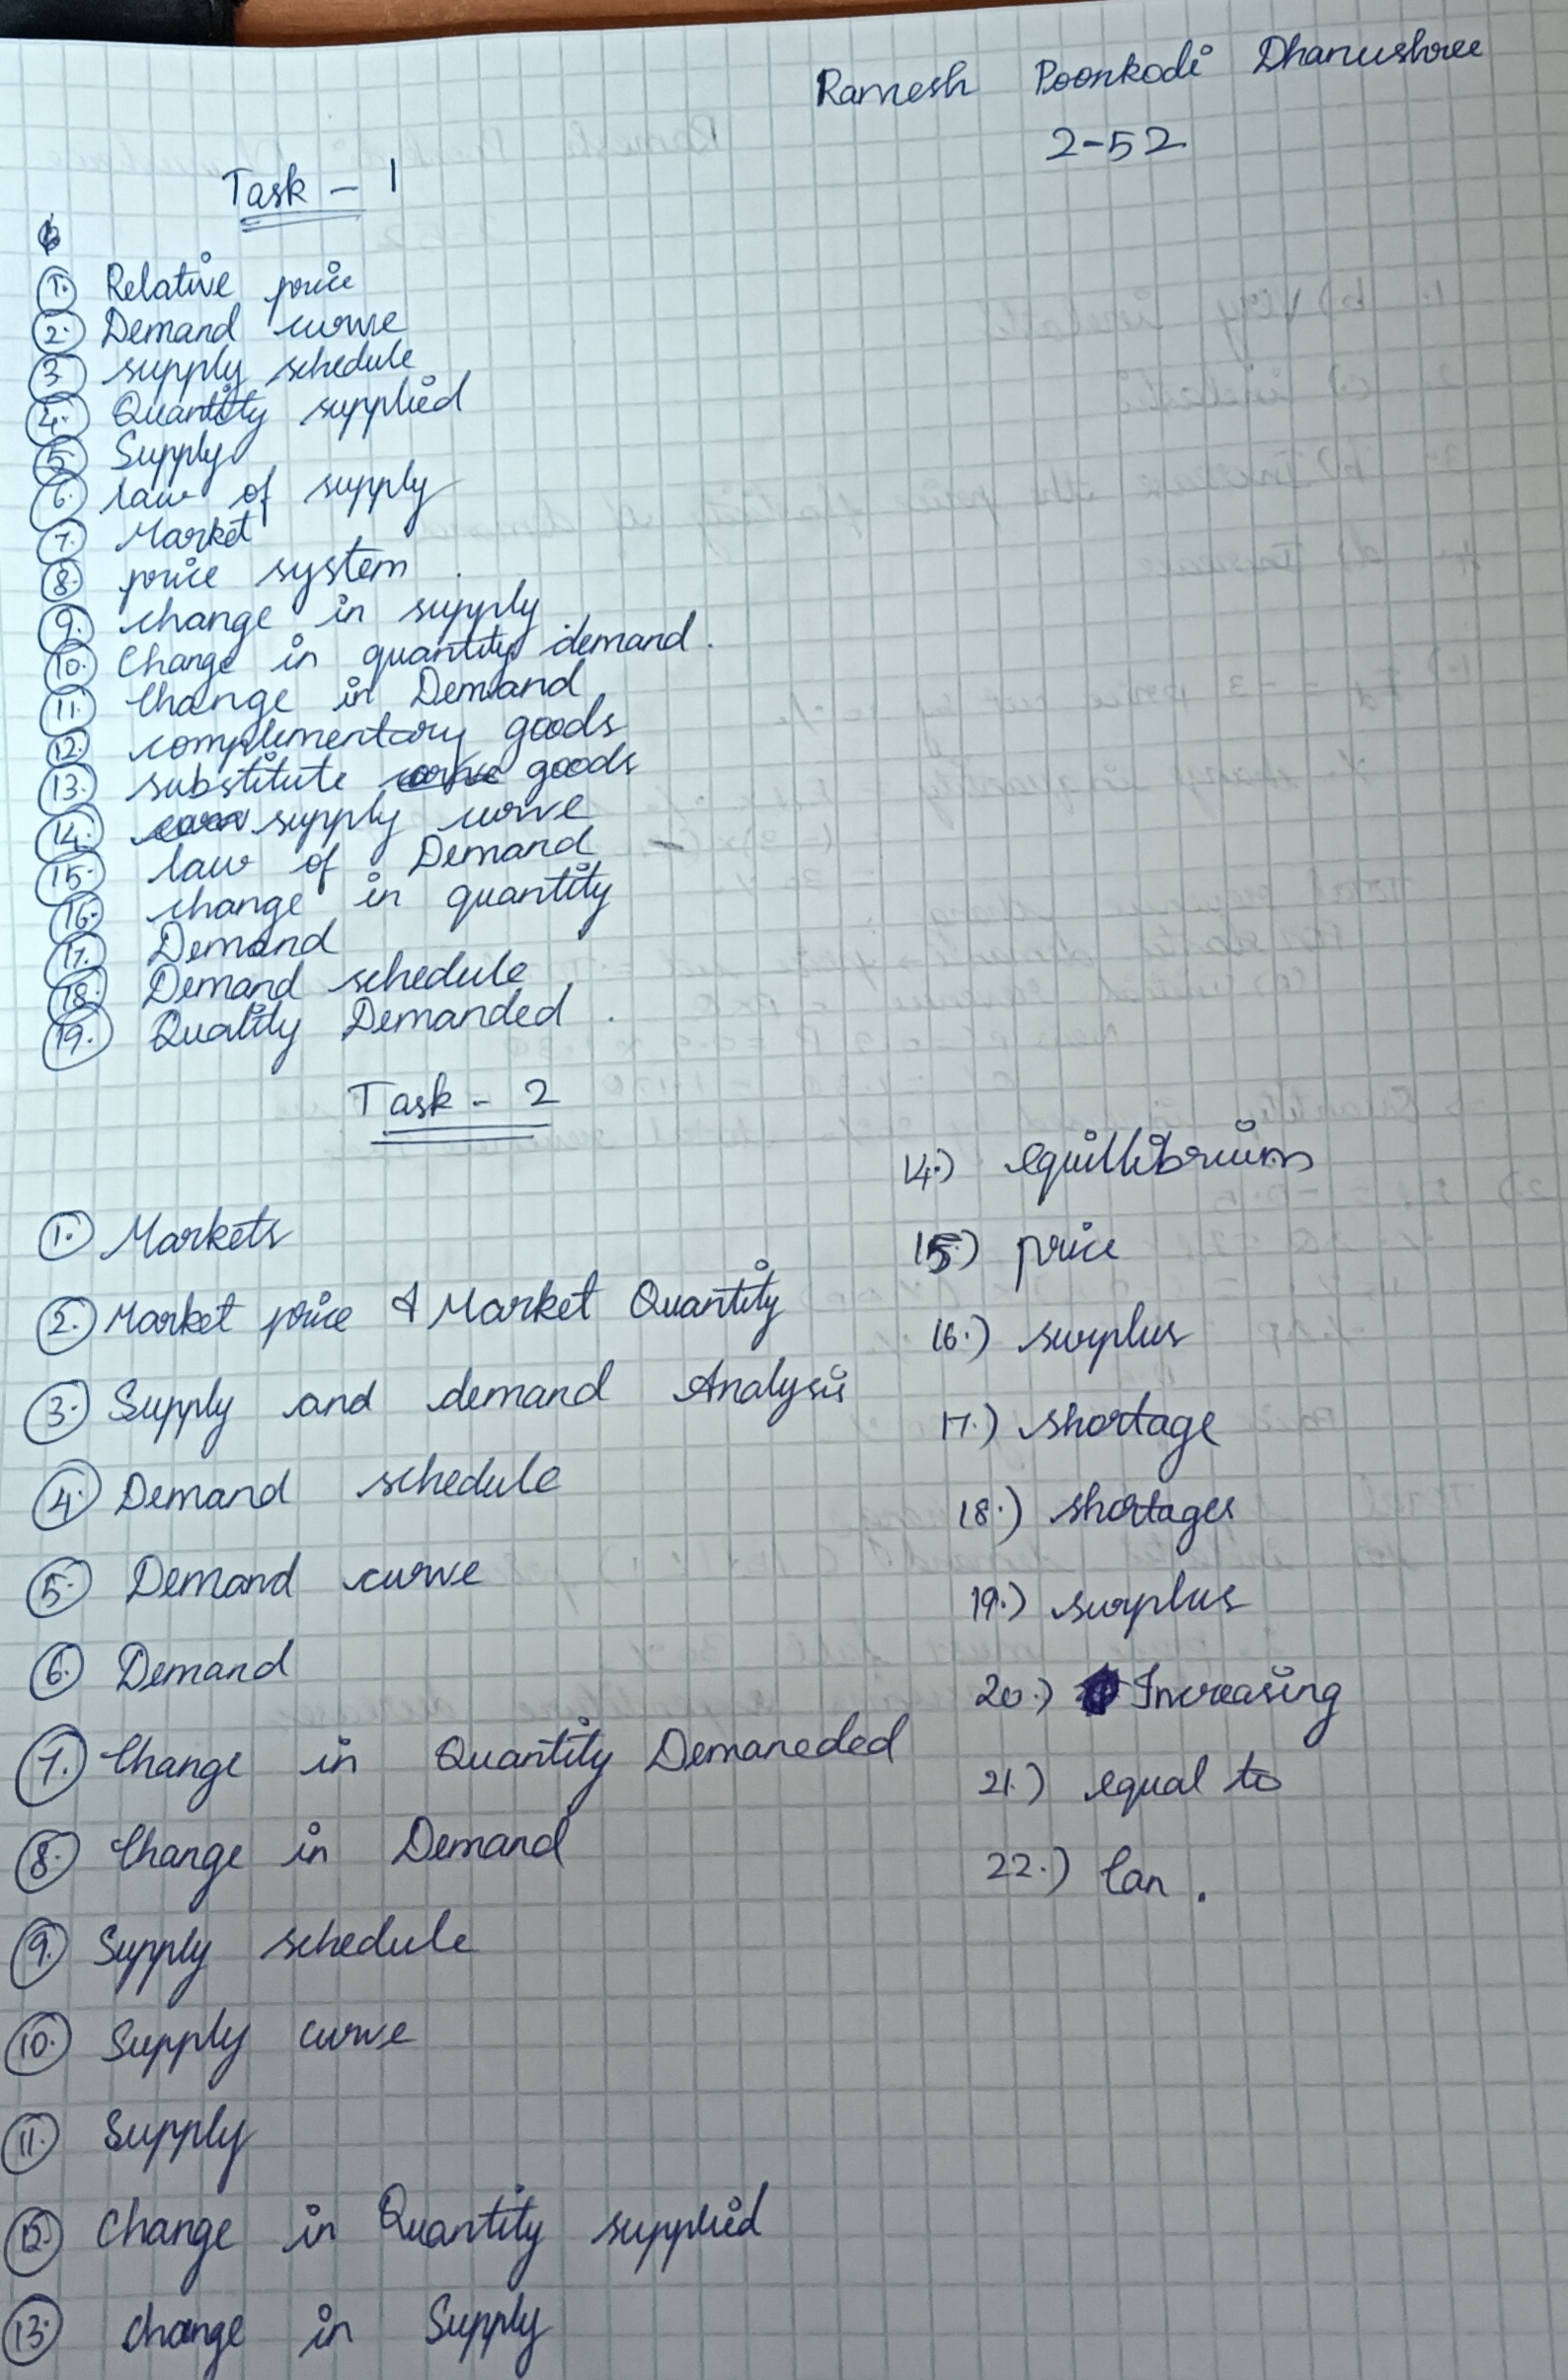 Ramesh Poonkodi Dhanushree
2-52
Task - 1
1. Relative price
2. Demand curve
3. supply schedule
4. Quantity supplied
5. Supply
6. law of supply
7. Market
8. price system
9. change in supply
10. Change in quantity demand.
11. Change in Demand
12. complimentary goods
13. substitute goods
14. supply curve
15. law of Demand
16. change in quantity
17. Demand
18. Demand schedule
19. Quality Demanded.
Task - 2
1. Markets
2. Market price & Market Quantity
3. Supply and demand Analysis
4. Demand schedule
5. Demand curve
6. Demand
7. Change in Quantity Demaneded
8. Change in Demand
9. Supply schedule
10. Supply curve
11. Supply
12. Change in Quantity supplied
13. change in Supply
14.) equillibrium
15.) price
16.) surplus
17.) shortage
18.) shortages
19.) surplus
20.) Increasing
21.) equal to
22.) Can.